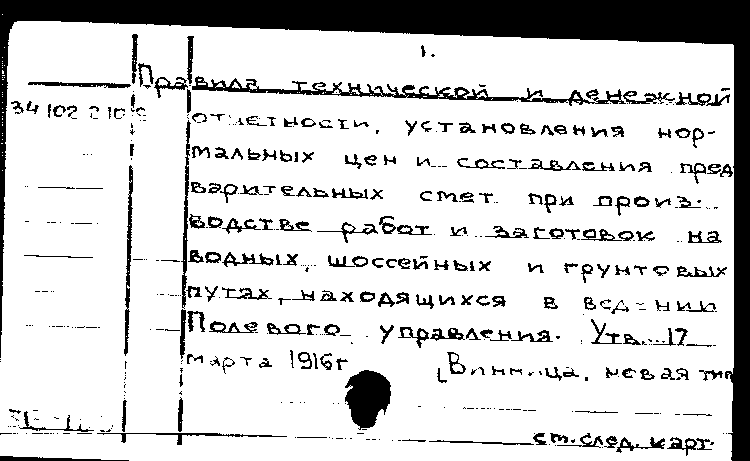 1.
Правила технической и денежной
отчетности, установления нор-
мальных цен и составления пред
варительных смет при произ-
водстве работ и заготовок на
водных, шоссейных и грунтовых
путях, находящихся в ведении
Полевого управления. Утв. 17
марта 1916г [Винница, невая тип
см. след. карт.